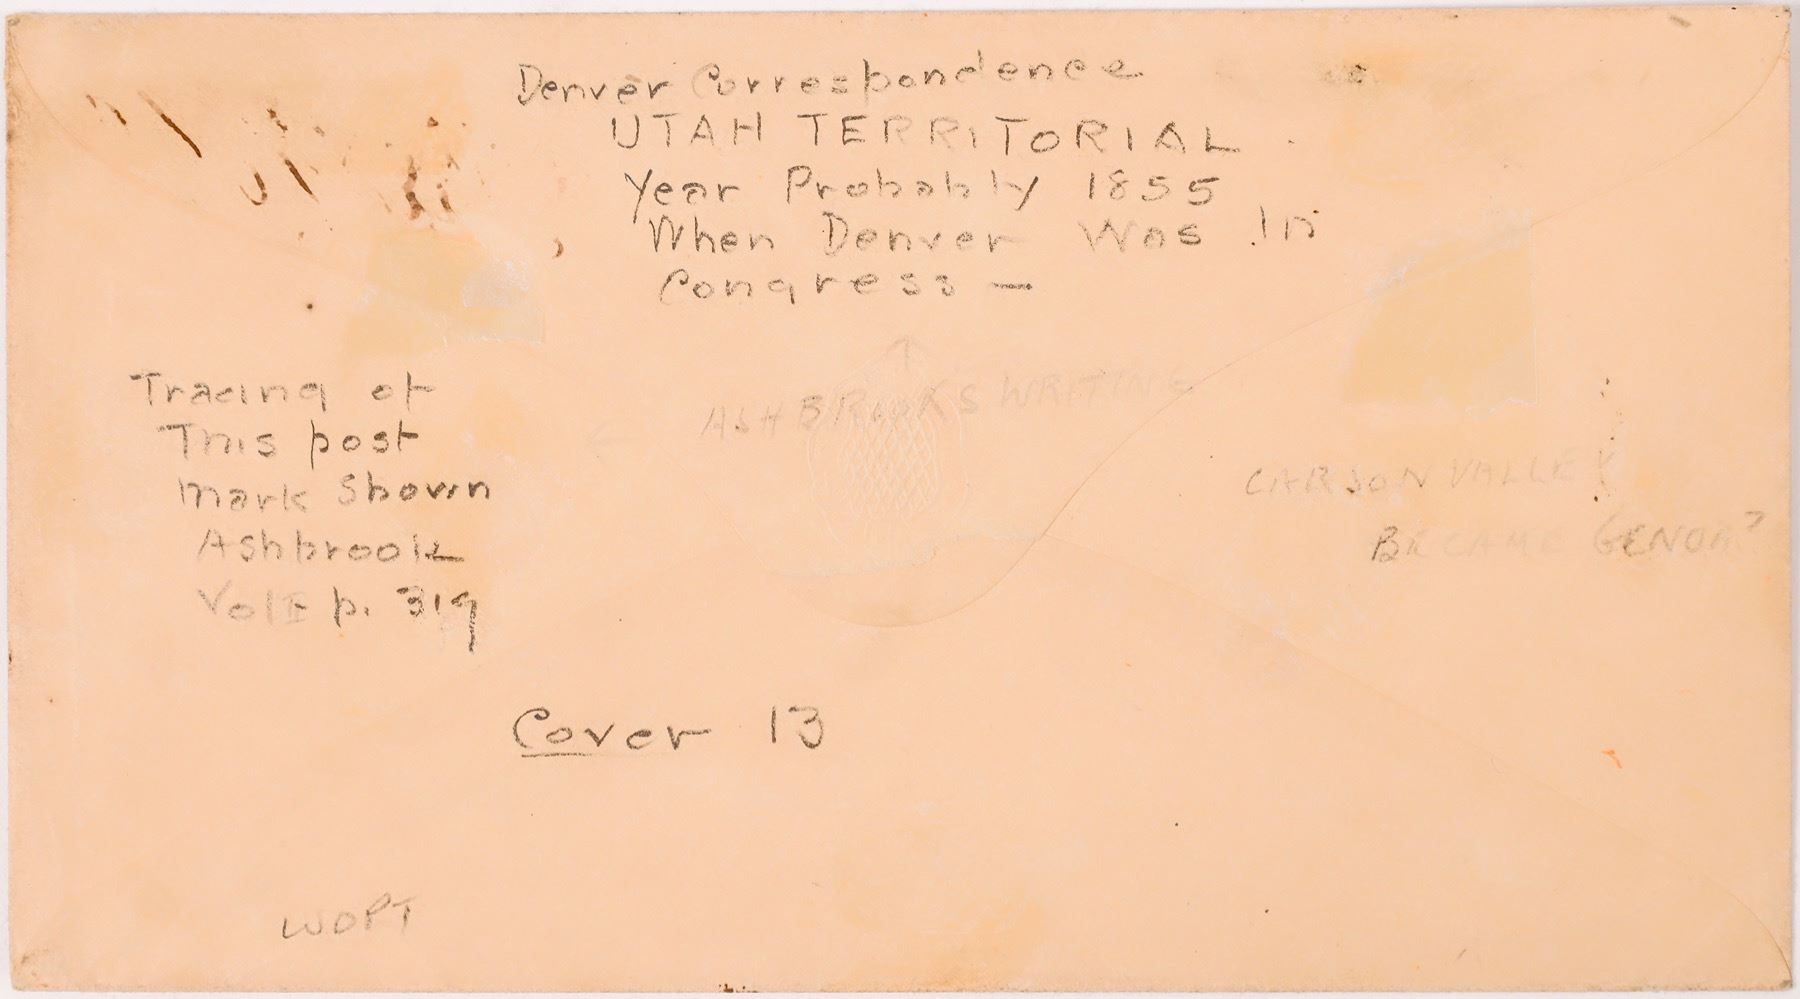 Denver Correspondence
UTAH TERRITORIAL
Year Probably 1855
When Denver Was In
Congress —
ASHBROOK'S WRITING
Tracing of
This post
mark Shown
Ashbrook
Vol II p. 319
CARSON VALLEY
BECAME GENOA?
Cover 13
WOPT